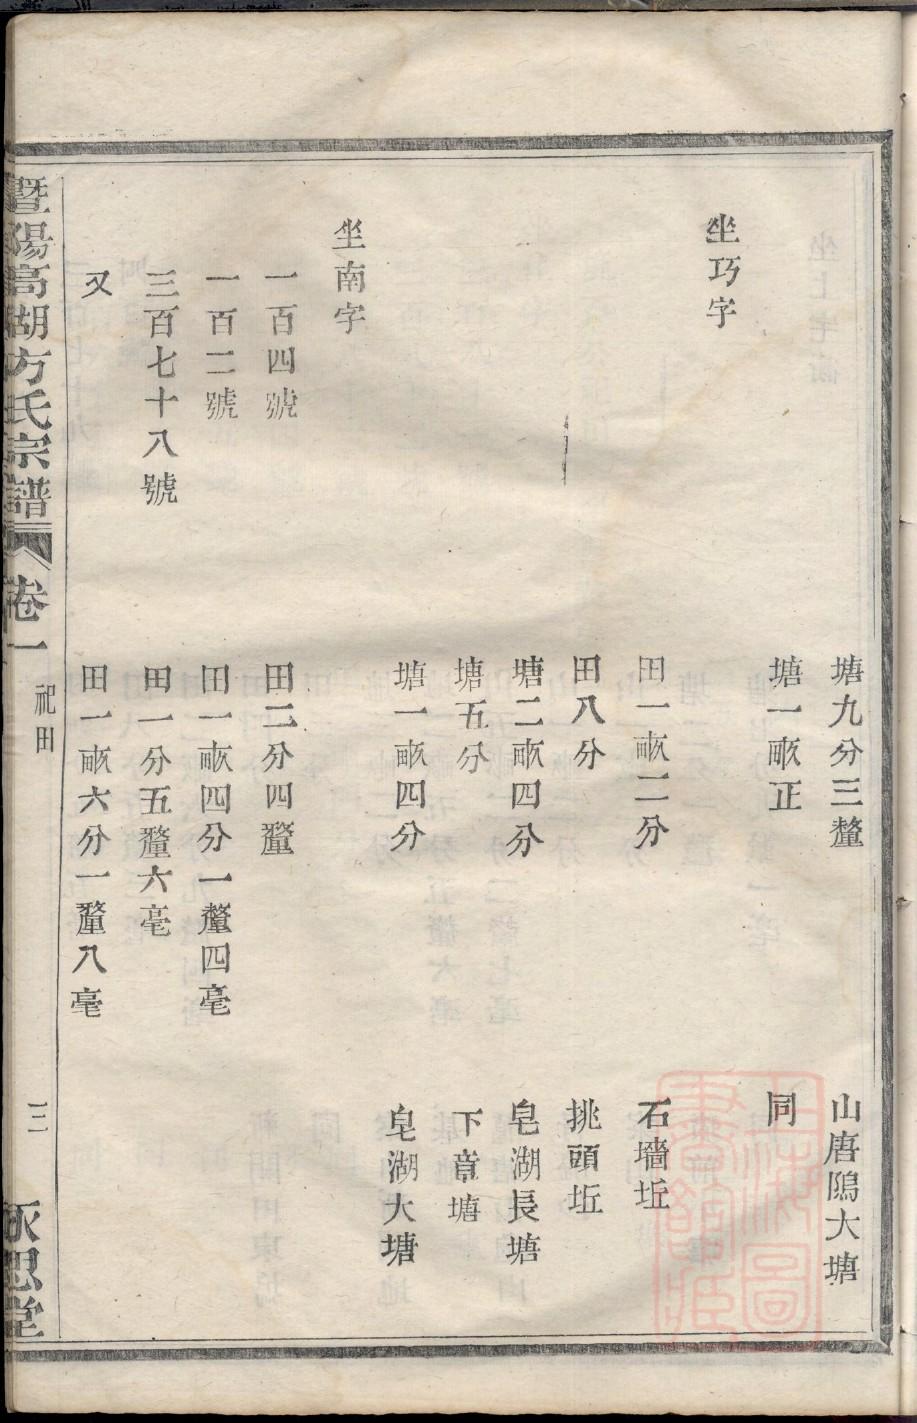 塘九分三釐　山唐隝大塘
塘一畝正　同
坐巧字
田一畝二分　石墻坵
田八分　挑頭坵
塘二畝四分　皂湖長塘
塘五分　下章塘
塘一畝四分　皂湖大塘
坐南字
一百四號　田二分四釐
一百二號　田一畝四分一釐四毫
三百七十八號　田一分五釐六毫
又　田一畝六分一釐八毫
暨陽高湖方氏宗譜　卷一　祀田　三　永思堂